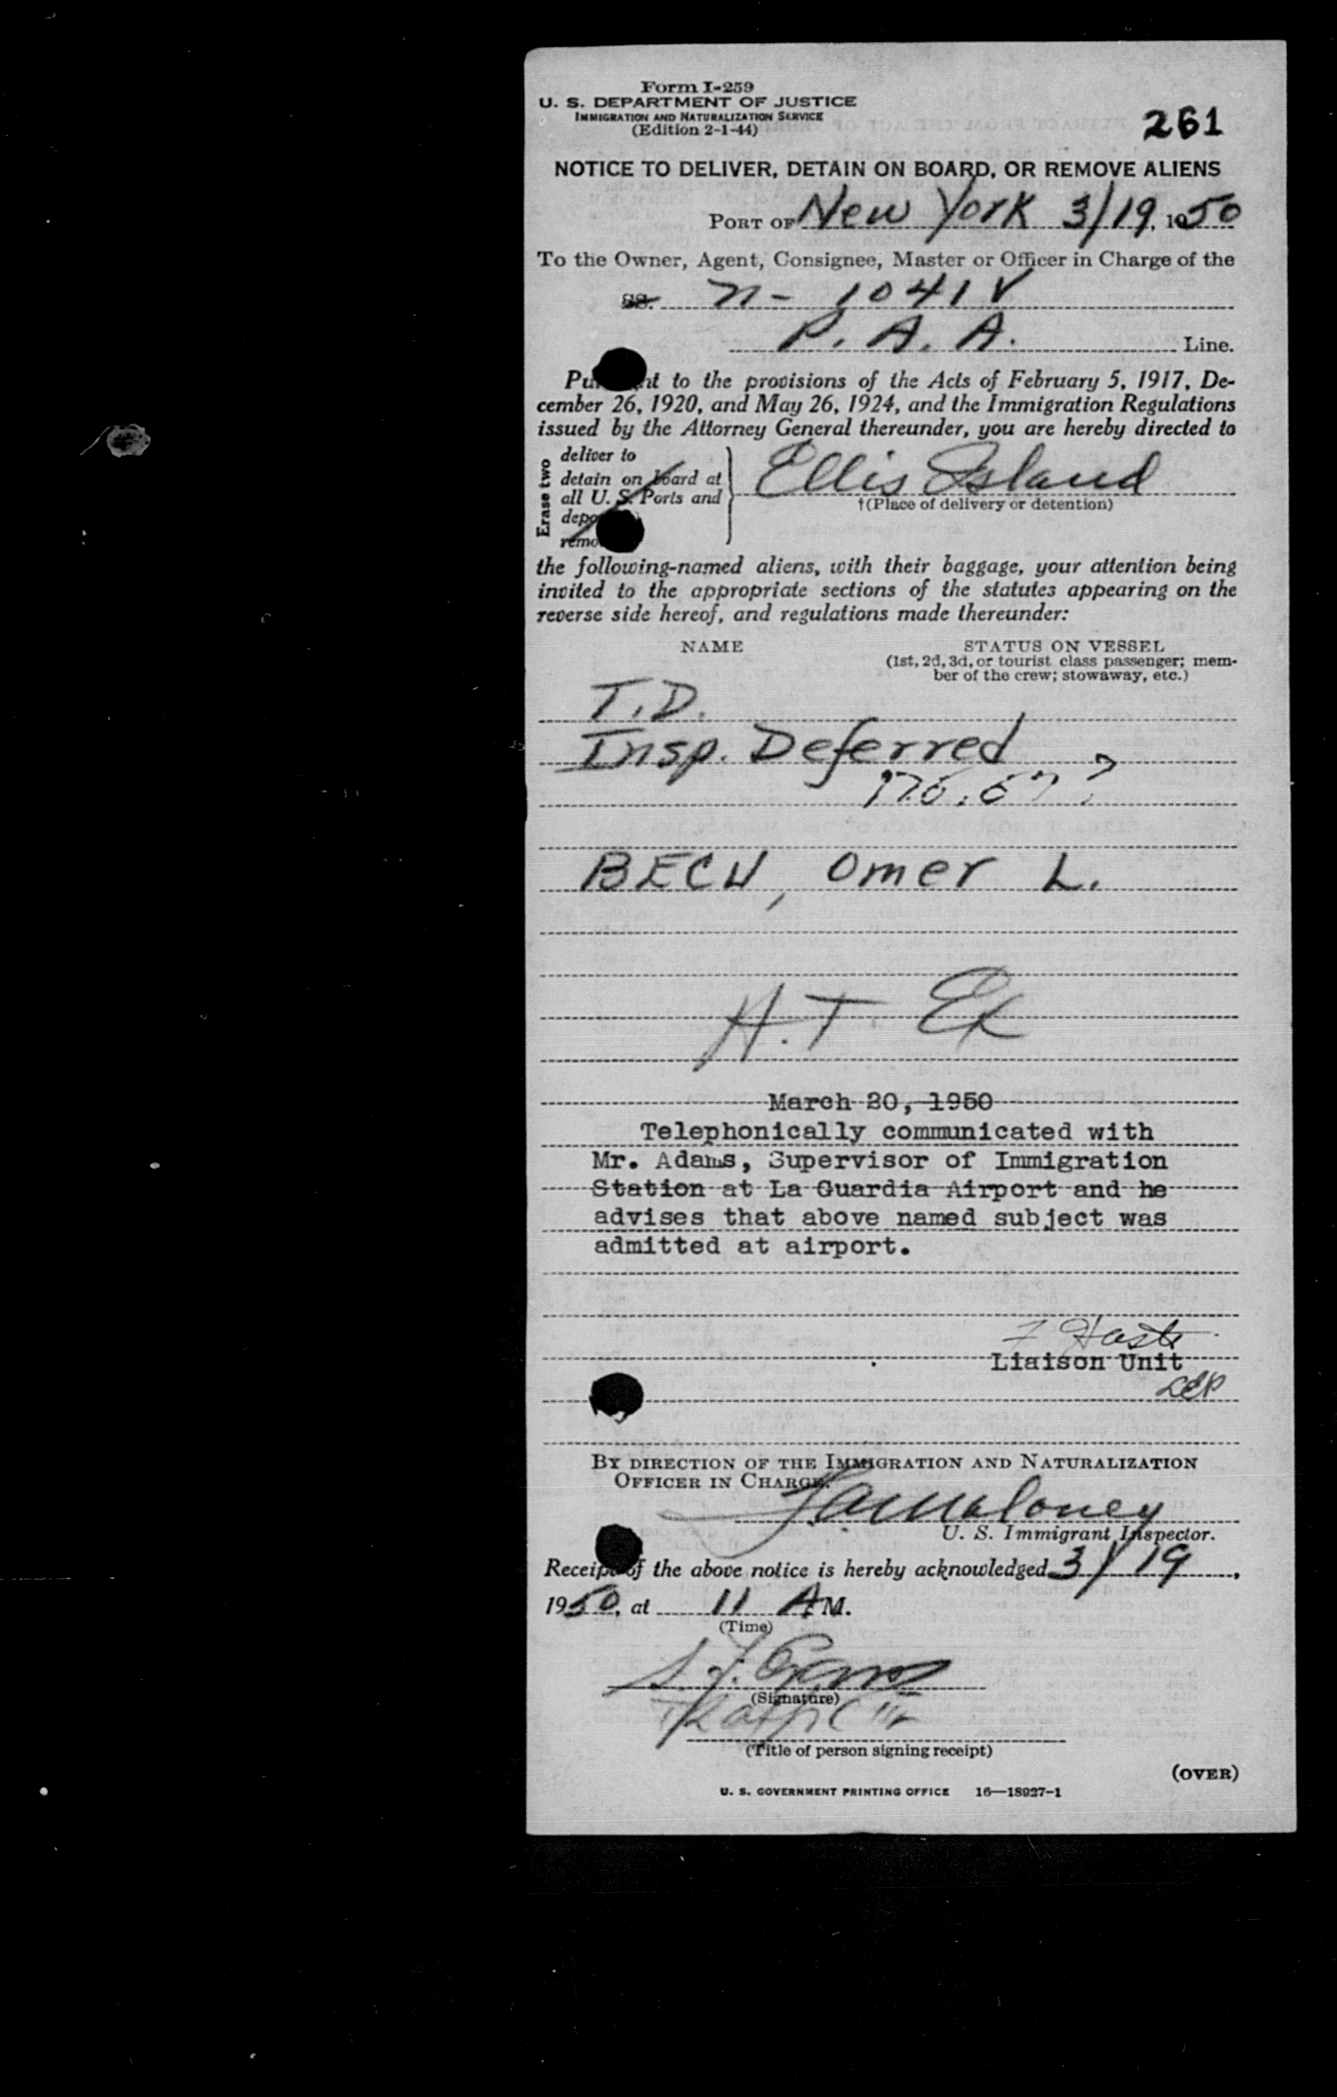 Form I-259
U. S. DEPARTMENT OF JUSTICE
IMMIGRATION AND NATURALIZATION SERVICE
(Edition 2-1-44)
261
NOTICE TO DELIVER, DETAIN ON BOARD, OR REMOVE ALIENS
PORT OF New York 3/19, 1950
To the Owner, Agent, Consignee, Master or Officer in Charge of the
SS. N-1041V
P. A. A. Line.
to the provisions of the Acts of February 5, 1917, De-
cember 26, 1920, and May 26, 1924, and the Immigration Regulations
issued by the Attorney General thereunder, you are hereby directed to
Erase two
deliver to
detain on board at
all U. S. Ports and
Ellis Island
†(Place of delivery or detention)
the following-named aliens, with their baggage, your attention being
invited to the appropriate sections of the statutes appearing on the
reverse side hereof, and regulations made thereunder:
NAME
STATUS ON VESSEL
(1st, 2d, 3d, or tourist class passenger; mem-
ber of the crew; stowaway, etc.)
T.D.
Insp. Deferred
Omer L.
A.T. Ex
March 20, 1950
Telephonically communicated with
Mr. Adams, Supervisor of Immigration
Station at La Guardia Airport and he
advises that above named subject was
admitted at airport.
Liaison Unit
BY DIRECTION OF THE IMMIGRATION AND NATURALIZATION
OFFICER IN CHARGE.
Maloney
U. S. Immigrant Inspector.
Receipt of the above notice is hereby acknowledged 3/19,
1950, at 11 A M.
(Time)
(Signature)
(Title of person signing receipt)
(OVER)
U. S. GOVERNMENT PRINTING OFFICE 16—18927-1